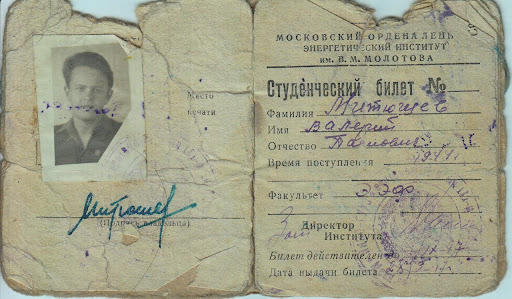 Место
печати
Митюшев
(Подпись владельца)
МОСКОВСКИЙ ОРДЕНА ЛЕН
ЭНЕРГЕТИЧЕСКИЙ ИНСТИТУТ
им. В. М. МОЛОТОВА
Студенческий билет №
Фамилия Митюшев
Имя Валерий
Отчество
Время поступления
Факультет ЭЭФ
Зам Директор
Института
Билет действителен до
Дата выдачи билета